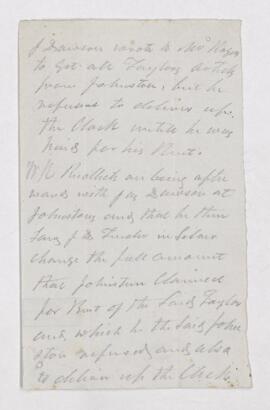 J Dawson wrote to Mr
to Get all Taylors Artcls
from Johnston, but he
refused to deliver up
the Clock untill he was
paid for his Rent.
W R on being after
wards with Jas Dawson at
Johnstons and that he then
saw J D in Silver
change the full amount
that Johnston Claimed
for Rent of the said Taylor
and which he the said John
ston refused and also
to deliver up the Clock.